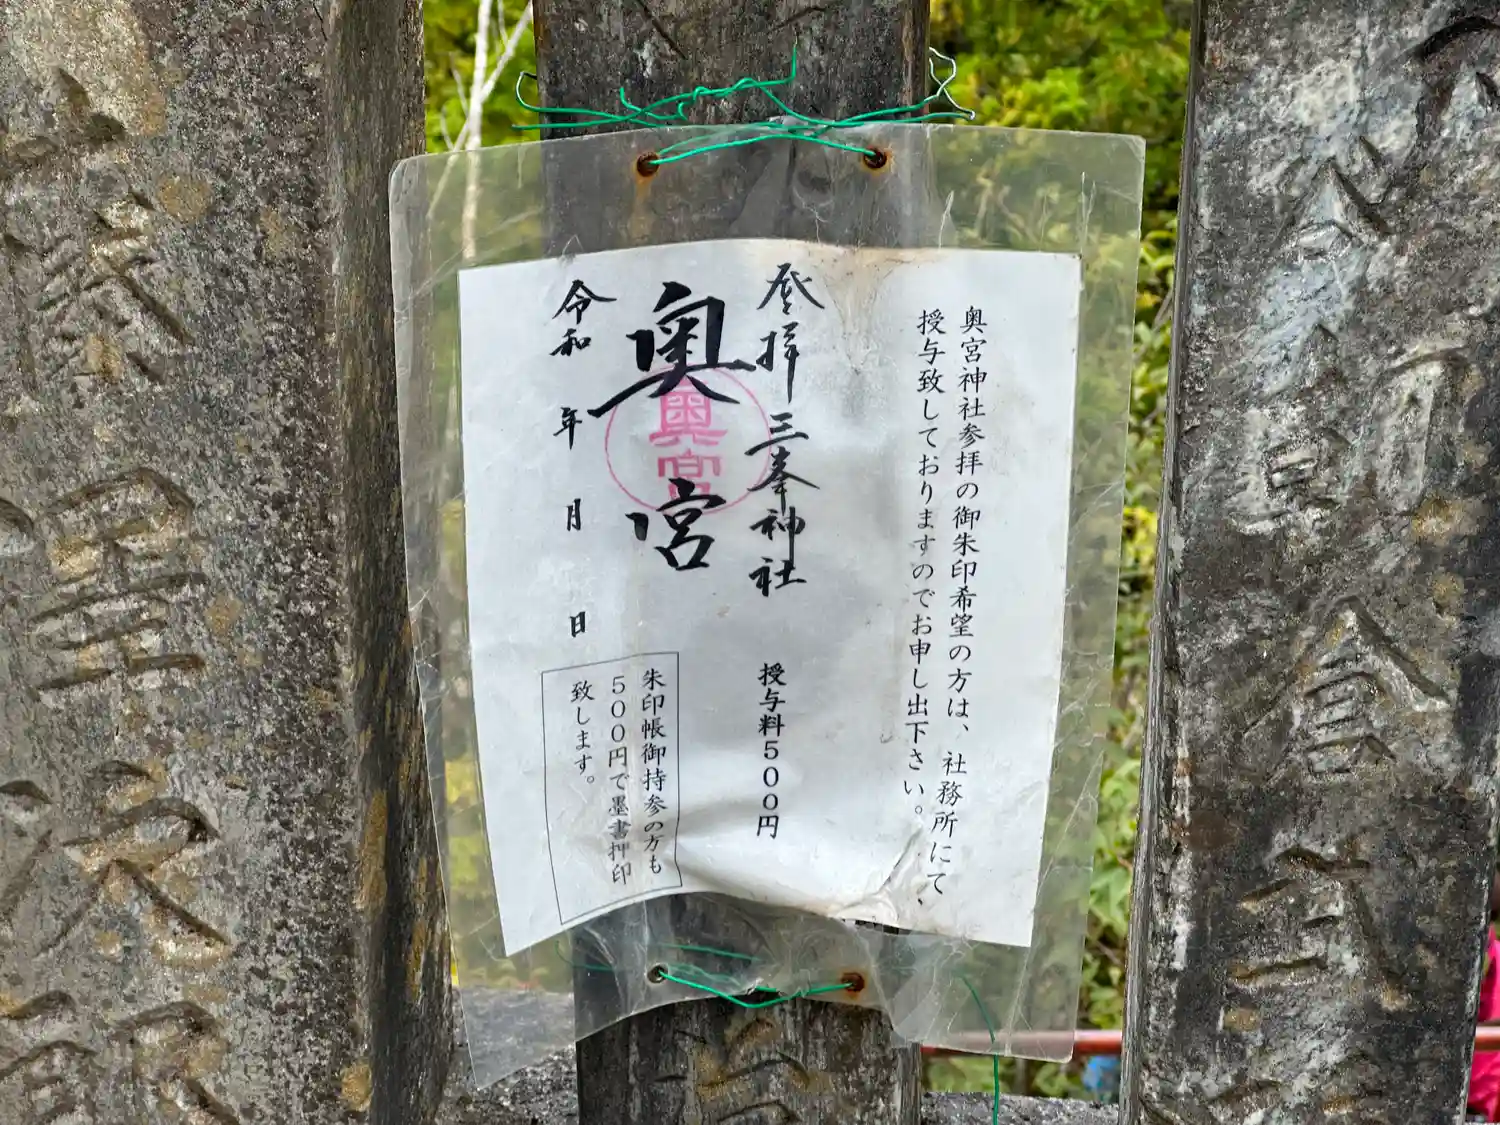 奥宮神社参拝の御朱印希望の方は、社務所にて、
授与致しておりますのでお申し出下さい。
登拝三峯神社
授与料500円
奥宮
奥宮
令和 年 月 日
朱印帳御持参の方も
500円で墨書押印
致します。